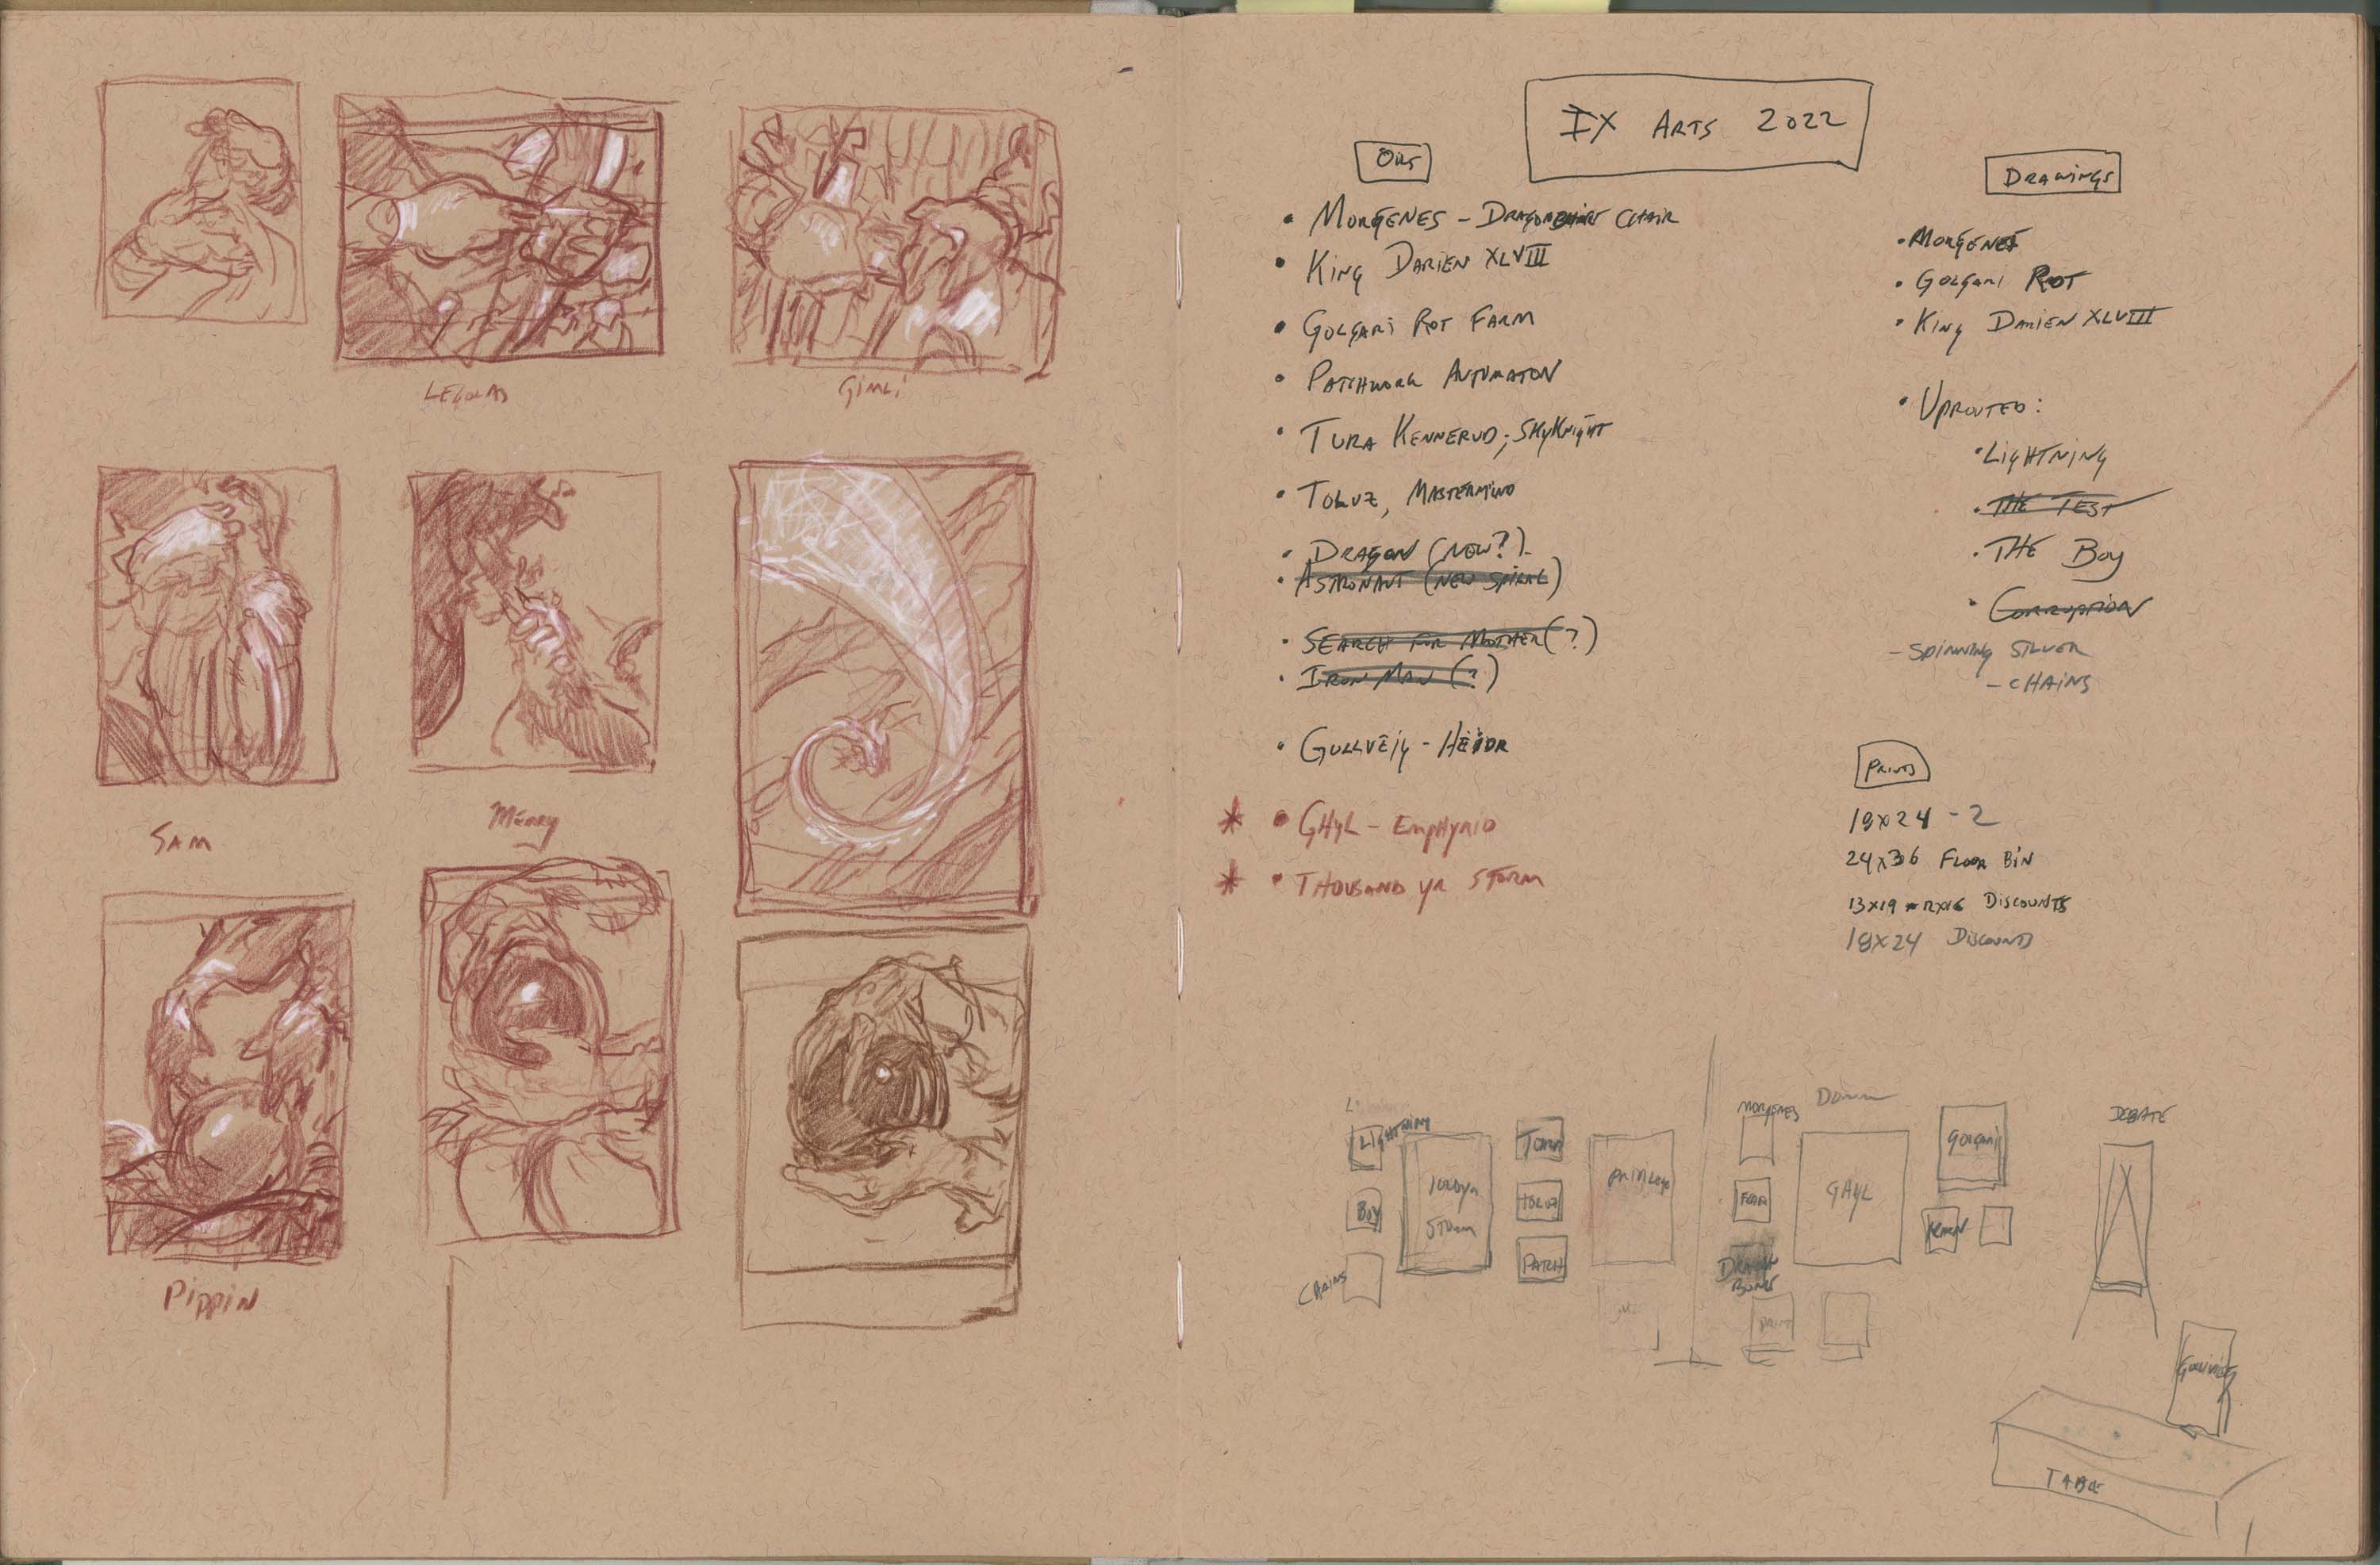 LEGOLAS
GIMLI
SAM
MERRY
PIPPIN
IX ARTS 2022
OILS
• MORGENES - DRAGONBONE CHAIR
• KING DARIEN XLVIII
• GOLGARI ROT FARM
• PATCHWORK AUTOMATON
• TURA KENNERUD; SKYKNIGHT
• TOLUZ, MASTERMIND
• DRAGON (NEW?)
• ASTRONAUT (NEW SPIRAL)
• SEARCH FOR MOTHER (?)
• IRON MAN (?)
• GULLVEIG - HEIDR
* • GHYL - EMPHYRIO
* • THOUSAND YR STORM
DRAWINGS
• MORGENES
• GOLGARI ROT
• KING DARIEN XLVIII
• UPROOTED:
• LIGHTNING
• THE TEST
• THE BOY
• CORRUPTION
- SPINNING SILVER
- CHAINS
PRINTS
18x24 - 2
24x36 FLOOR BIN
13x19 - 12x16 DISCOUNTS
18x24 DISCOUNTS
LIGHTNING
BOY
CHAINS
1000YR
STORM
TURA
TOLUZ
PATCH
MORGENES
DRAGON
BONE
PRINT
GHYL
GOLGARI
DEBATE
GULLVEIG
TABLE